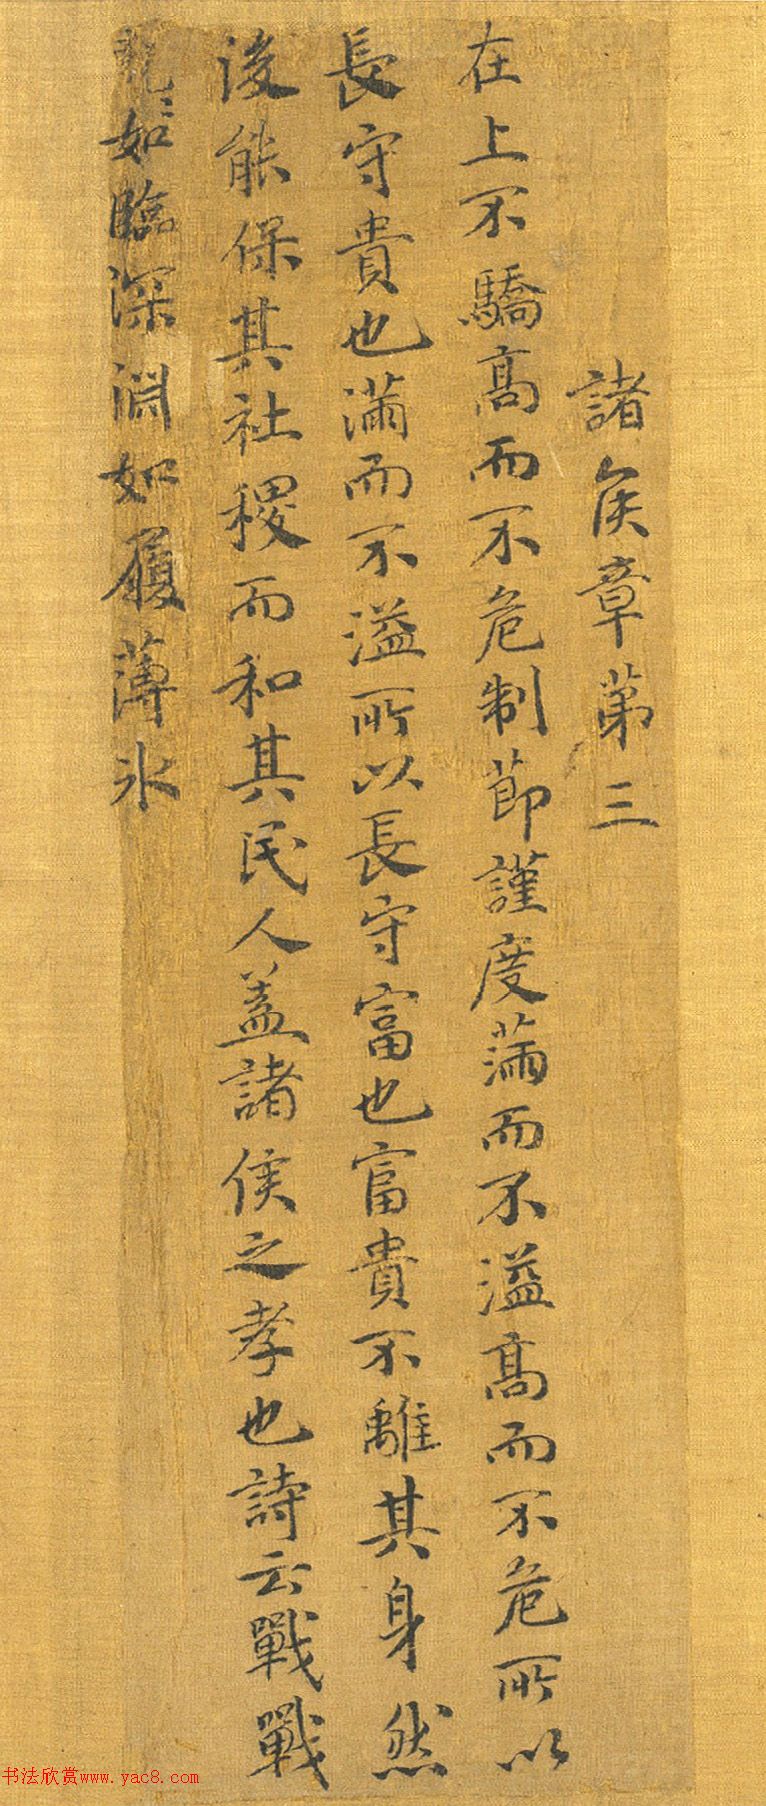 諸侯章第三
在上不驕高而不危制節謹度滿而不溢高而不危所以
長守貴也滿而不溢所以長守富也富貴不離其身然
後能保其社稷而和其民人蓋諸侯之孝也詩云戰戰
兢〻如臨深淵如履薄冰
书法欣赏www.yac8.com